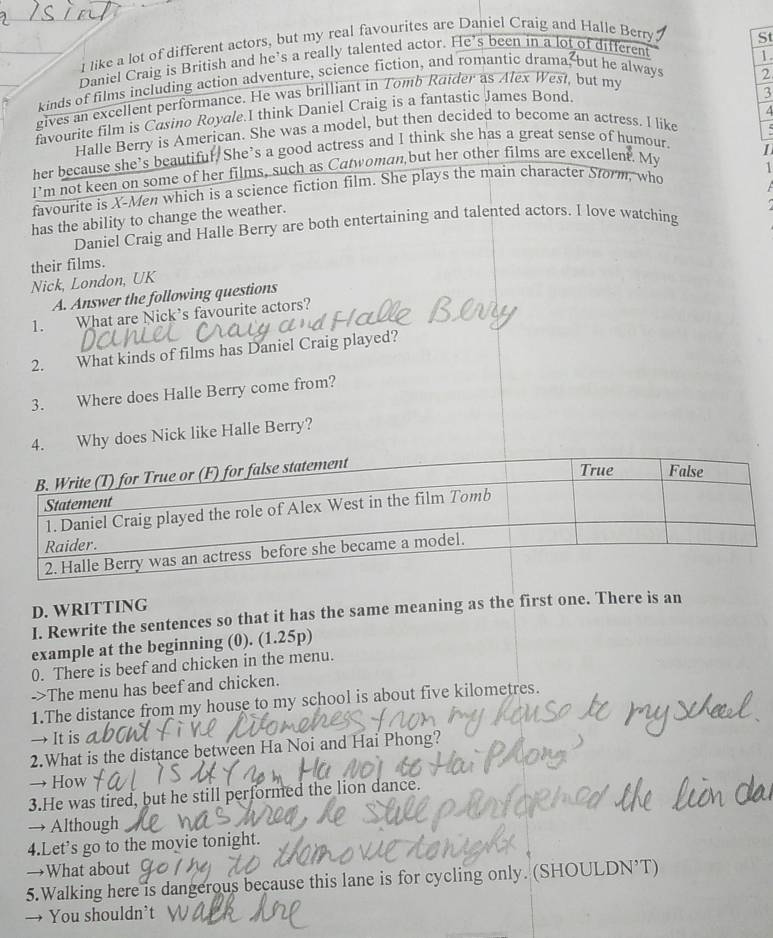 I like a lot of different actors, but my real favourites are Daniel Craig and Halle Berry.
Daniel Craig is British and he's a really talented actor. He's been in a lot of different
kinds of films including action adventure, science fiction, and romantic drama, but he always
gives an excellent performance. He was brilliant in Tomb Raider as Alex West, but my
favourite film is Casino Royale.I think Daniel Craig is a fantastic James Bond.
Halle Berry is American. She was a model, but then decided to become an actress. I like
her because she's beautiful. She's a good actress and I think she has a great sense of humour.
I'm not keen on some of her films, such as Catwoman,but her other films are excellent. My
favourite is X-Men which is a science fiction film. She plays the main character Storm, who
has the ability to change the weather.
Daniel Craig and Halle Berry are both entertaining and talented actors. I love watching
their films.
Nick, London, UK
A. Answer the following questions
1. What are Nick's favourite actors?
Daniel Craig and Halle Berry
2. What kinds of films has Daniel Craig played?
3. Where does Halle Berry come from?
4. Why does Nick like Halle Berry?
B. Write (T) for True or (F) for false statement
Statement True False
1. Daniel Craig played the role of Alex West in the film Tomb
Raider.
2. Halle Berry was an actress before she became a model.
D. WRITTING
I. Rewrite the sentences so that it has the same meaning as the first one. There is an
example at the beginning (0). (1.25p)
0. There is beef and chicken in the menu.
->The menu has beef and chicken.
1.The distance from my house to my school is about five kilometres.
→ It is about five kilometress from my house to my school.
2.What is the distance between Ha Noi and Hai Phong?
→ How is it from Ha Noi to Hai Phong?
3.He was tired, but he still performed the lion dance.
→ Although he was tired, he still performed the lion
4.Let's go to the movie tonight.
→What about going to the movie tonight.
5.Walking here is dangerous because this lane is for cycling only. (SHOULDN'T)
→ You shouldn't walk
St
1.
2
3
4